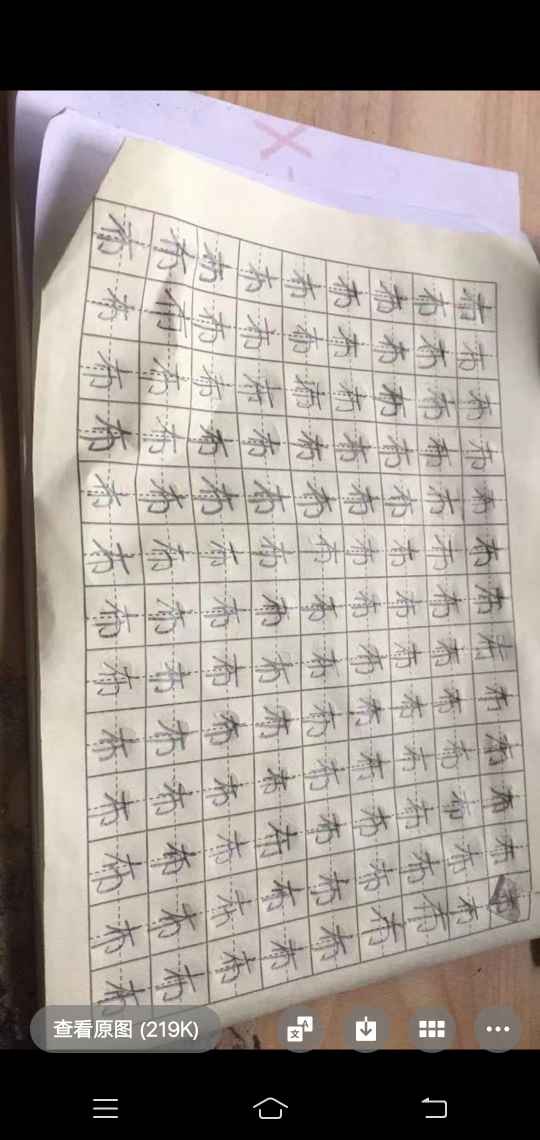 布布布布布布布布布
布布布布布布布布布
布布布布布布布布布
布布布布布布布布布
布布布布布布布布布
布布布布布布布布布
布布布布布布布布布
布布布布布布布布布
布布布布布布布布布
布布布布布布布布布
布布布布布布布布布
布布布布布布布布布
布布布布布布布布布
查看原图 (219K)